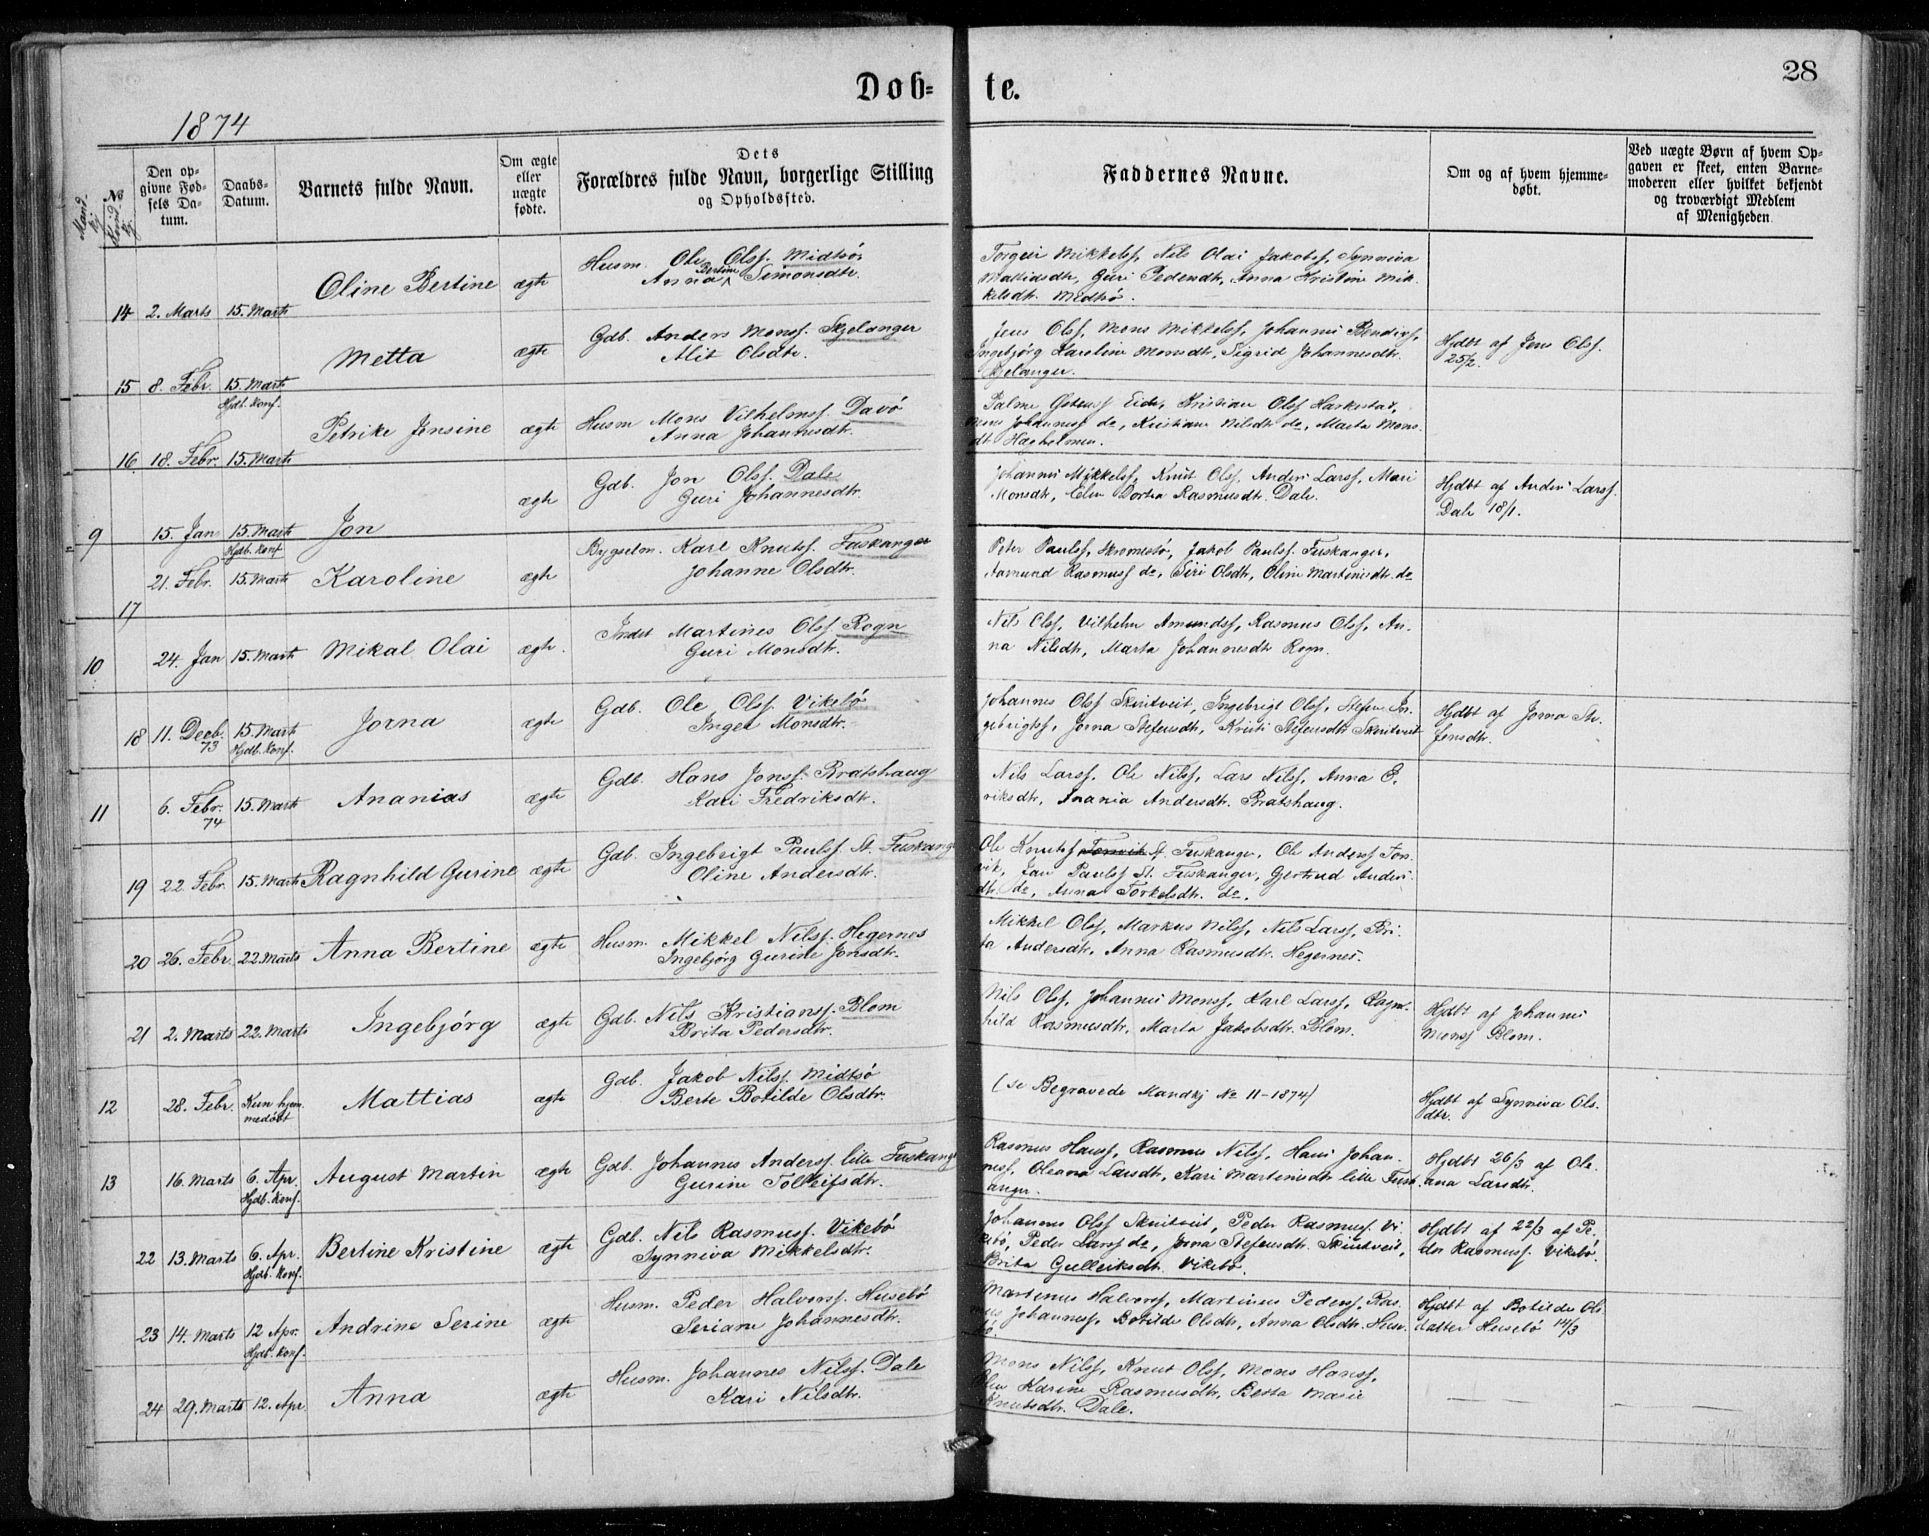 Døb=
te.
28
1874
Mandkj.
№
Kvindkj.
Den op-
givne Fød-
sels Da-
tum.
Daabs-
Datum.
Barnets fulde Navn.
Om ægte
eller
uægte
fødte.
Dets
Forældres fulde Navn, borgerlige Stilling
og Opholdssted.
Faddernes Navne.
Om og af hvem hjemme-
døbt.
Ved uægte Børn af hvem Op-
gaven er skeet, enten Barne-
moderen eller hvilket bekjendt
og troværdigt Medlem
af Menigheden.
14 2. Marts 15. Marts Oline Bertine ægte
Husm. Ole Olss. Midtsø
Anna Bertine Simonsdtr.
Torgeir Mikkelss, Nils Olai Jakobss, Synniva
Mattisdtr, Guri Pedersdtr, Anna Kristine Mik-
kelsdtr. Midtsø.
15 8. Febr. 15. Marts
Hjdb. Konf.
Metta ægte
Gdb. Anders Monss. Skjelanger
Alit Olsdtr.
Jens Olss, Mons Mikkelss, Johannes Bendixss,
Ingebjørg Karoline Monsdtr, Sigrid Johannesdtr.
Skjelanger.
Hjdbt af Jens Olss.
25/2.
16 18. Febr. 15. Marts Petrike Jensine ægte
Husm Mons Vilhelmss. Davø
Anna Johannesdtr.
Palme Eide, Kristian Olss Harkestad,
Mons Johanness do, Kristiane Nilsdtr do, Marta Mons-
dtr Hagholmen.
9 15. Jan 15. Marts
Hjdb. Konf
Jon ægte
Gdb. Jon Olss. Dale
Guri Johannesdtr.
Johannes Mikkelss, Knut Olss, Anders Larss, Mari
Monsdtr, Elen Dortea Rasmusdtr. Dale.
Hjdbt af Anders Larss.
Dale 18/1.
17 21. Febr. 15. Marts Karoline ægte
Bygselm. Karl Knutss. Fuskanger
Johanne Olsdtr.
Peter Paulss, Skromestø, Jakob Paulss. Fuskanger,
Aamund Rasmuss do, Siri Olsdtr, Oline Martinesdtr. do
10 24. Jan 15. Marts Mikal Olai ægte.
Inderst Martines Olss Rogn
Guri Monsdtr.
Nils Olss, Vilhelm Amundss, Rasmus Olss, An-
na Nilsdtr, Marta Johannesdtr Rogn.
18 11. Decb.
73
15. Marts
Hjdb. Konf.
Jorna ægte
Gdb. Ole Olss. Vikebø
Inger Monsdtr.
Johannes Olss Skurtveit, Ingebrigt Olss, Stefen In-
gebrigtss, Jorna Stefensdtr, Kristi Stefensdtr Skurtveit
Hjdbt af Jorna Ste-
fensdtr.
11 6. Febr.
74
15. Marts Ananias ægte
Gdb. Hans Jonss. Bratshaug
Kari Fredriksdtr.
Nils Larss, Ole Nilss, Lars Nilss, Anna E-
riksdtr, Anania Andersdtr. Bratshaug.
19 22 Febr. 15. Marts Ragnhild Gurine ægte
Gdb. Ingebrigt Paulss. St. Fuskanger
Oline Andersdtr.
Ole Knutss Tonvik St. Fuskanger, Ole Anderss Ton-
vik, Jan Paulss St. Fuskanger, Gertrud Anders-
dtr. do, Anna Torkelsdtr. do.
20 26. Febr. 22. Marts Anna Bertine ægte
Husm. Mikkel Nilss. Hegernes
Ingebjørg Gurine Jonsdtr.
Mikkel Olss, Markus Nilss, Nils Larss, Bri-
ta Andersdtr, Anna Rasmusdtr. Hegernes.
21 2. Marts 22. Marts Ingebjørg ægte
Gdb. Nils Kristianss. Blom
Brita Pedersdtr.
Nils Olss, Johannes Monss, Karl Larss, Ragn-
hild Rasmusdtr, Marta Jakobsdtr. Blom.
Hjdbt af Johannes
Monss Blom.
12 28. Febr. Kun hjem-
medøbt
Mattias ægte
Gdb. Jakob Nilss. Midtsø
Berte Botilde Olsdtr.
(se Begravede Mandkj № 11-1874)
Hjdbt af Synniva Ols-
dtr.
13 16. Marts 6. Apr.
Hjdb. Konf.
August Martin ægte
Gdb. Johannes Anderss. lille Fuskanger
Gurine Tolleifsdtr.
Rasmus Hanss, Rasmus Nilss, Hans Johan-
ness, Oleana Larsdtr, Kari Martinisdtr lille Fusk-
anger.
Hjdbt 26/3 af Ole-
ana Larsdtr.
22 13. Marts 6. Apr.
Hjdb. Konf.
Bertine Kristine ægte
Gdb. Nils Rasmuss. Vikebø
Synniva Mikkelsdtr.
Johannes Olss Skurtveit, Peder Rasmuss. Vi-
kebø, Peder Larss do, Jorna Stefensdtr. Skurtveit,
Brita Gulleiksdtr. Vikebø.
Hjdbt af 22/3 af Pe-
der Rasmuss. Vikebø.
23 14. Marts 12 Apr.
Hjdb. Konf.
Andrine Serine ægte
Husm. Peder Halvorss. Husebø
Seriane Johannesdtr.
Martinus Halvorss, Martinus Pederss, Ras-
mus Johanness, Botilde Olsdtr, Anna Olsdtr. Huse-
bø.
Hjdbt af Botilde Ols-
datter Husebø 14/3
24 29. Marts 12. Apr Anna ægte
Husm. Johannes Nilss. Dale
Kari Nilsdtr.
Mons Nilss, Knut Olss, Mons Hanss,
Elen Karine Rasmusdtr, Berta Marie
Knutsdtr. Dale.